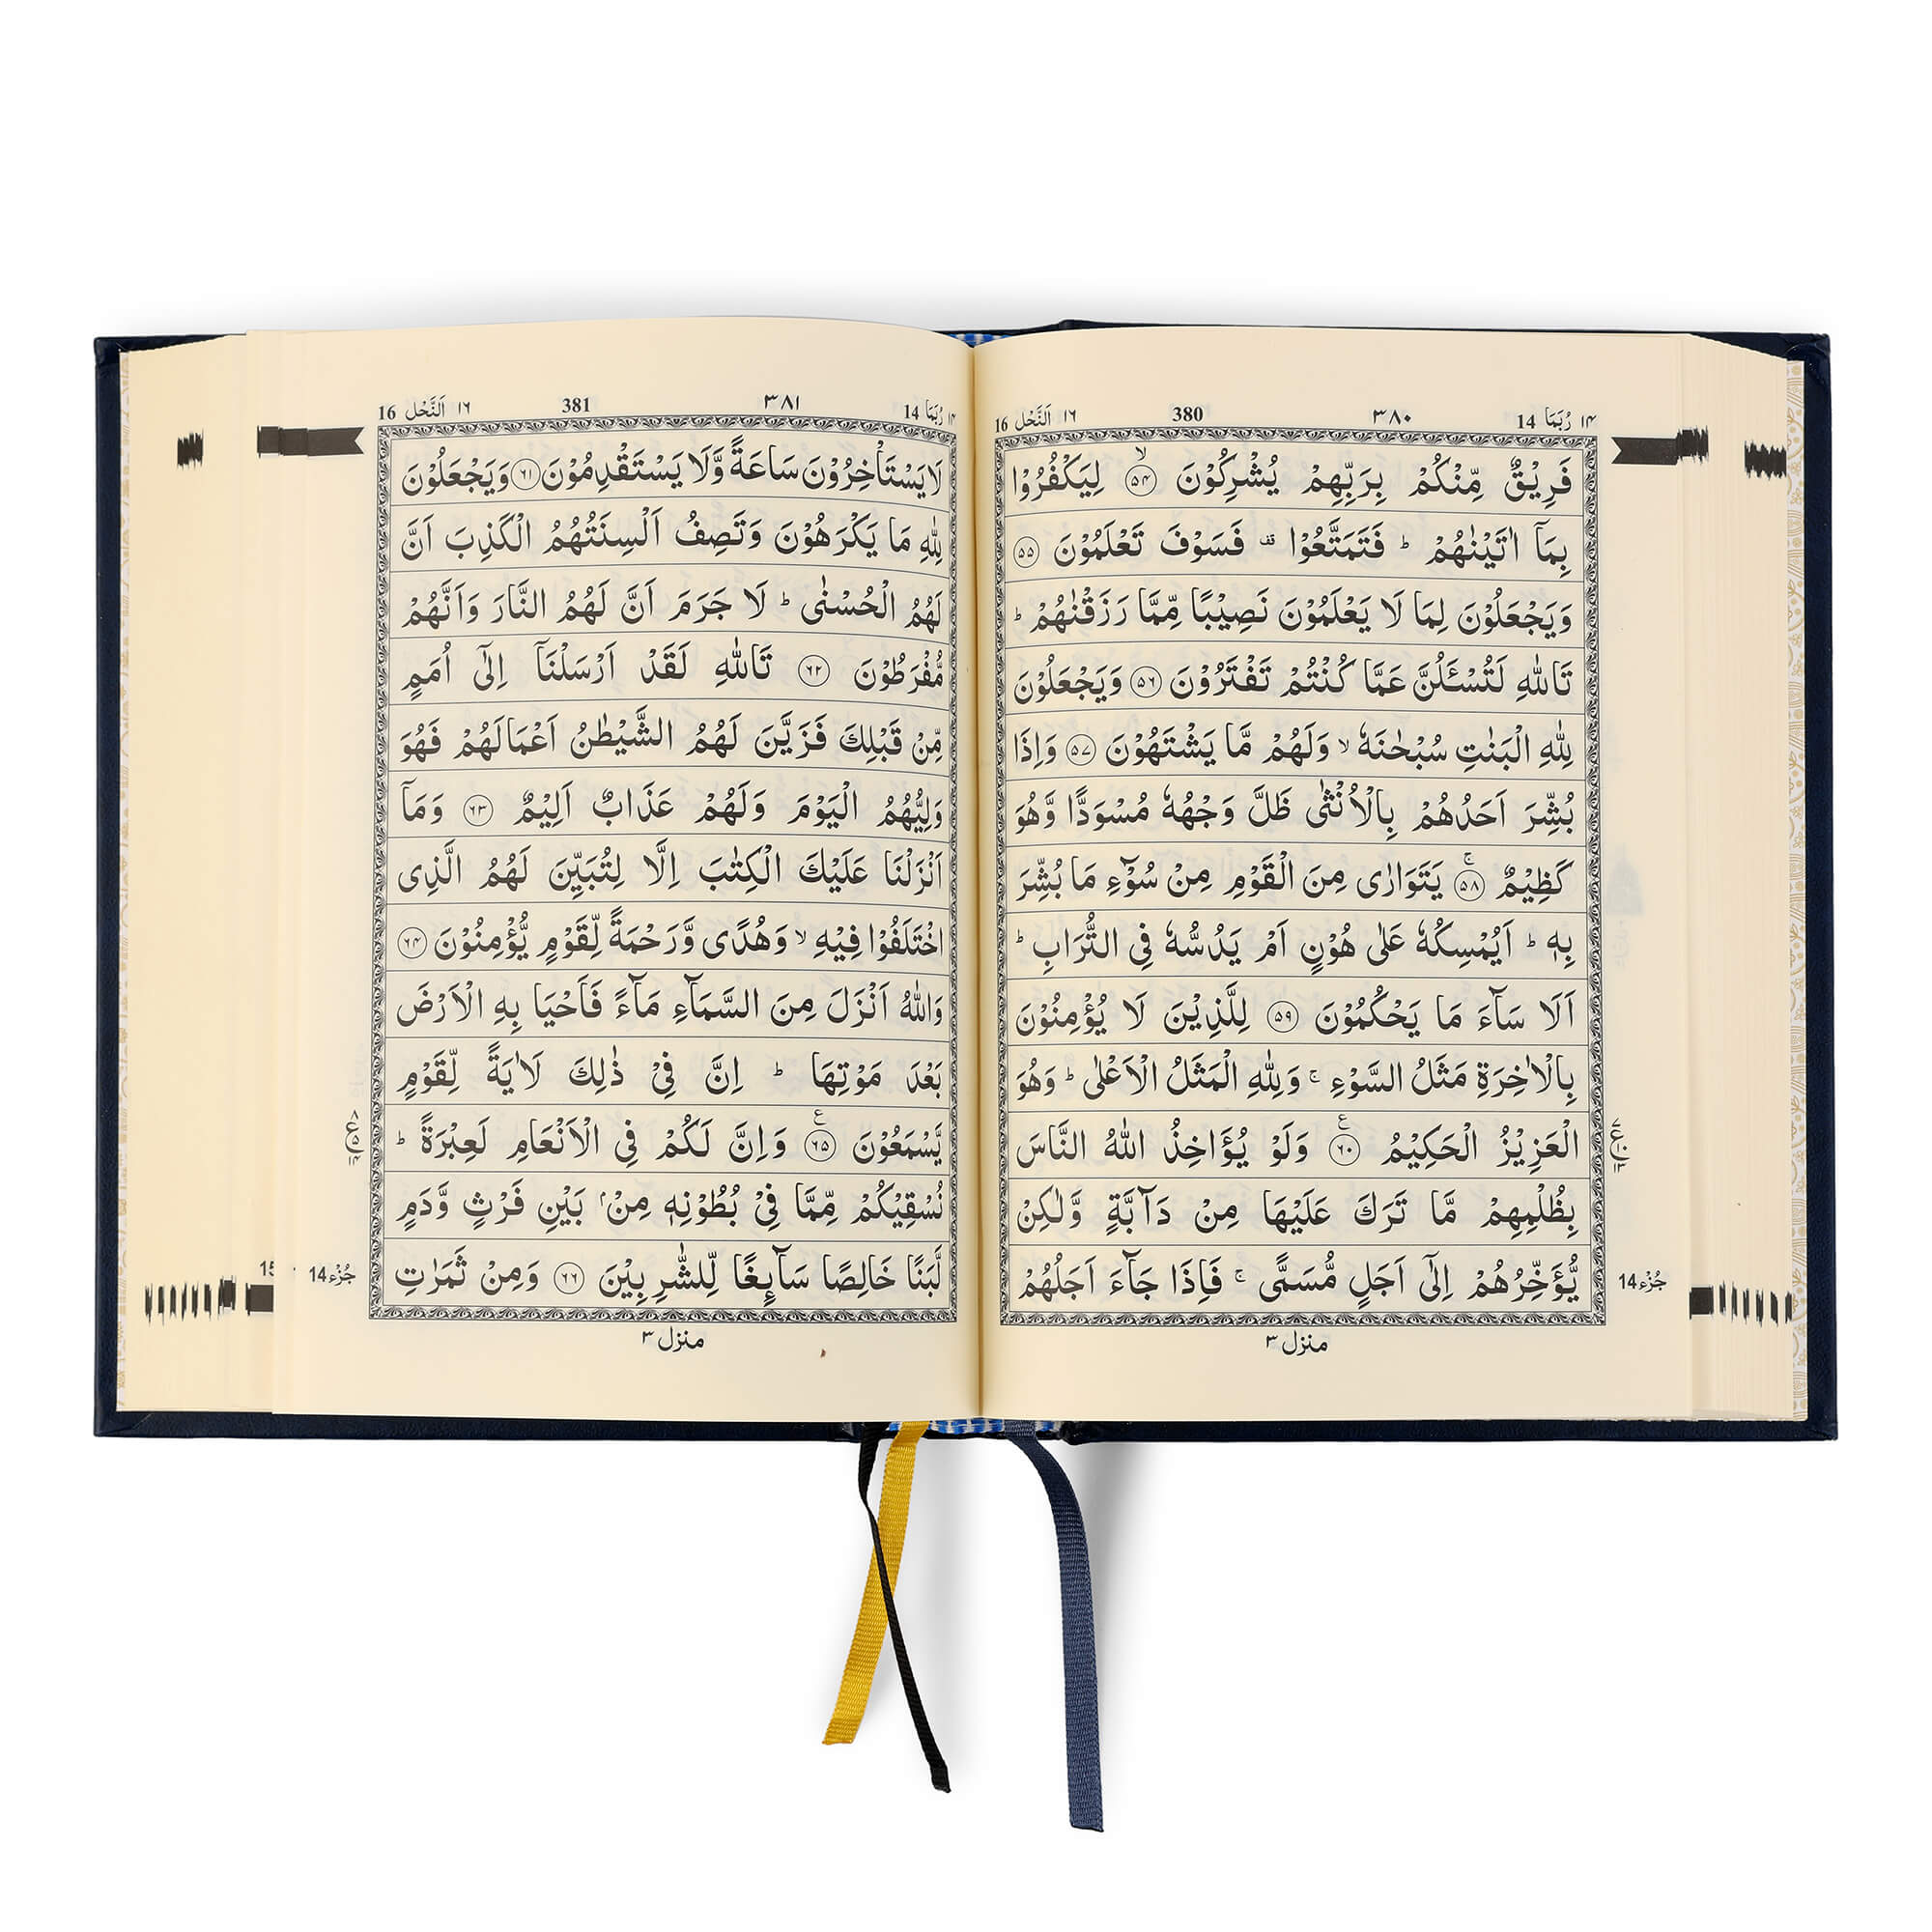 ١٤ رُبَمَا 14 ٣٨٠ 380 ١٦ اَلنَّحْل 16
فَرِيْقٌ مِّنْكُمْ بِرَبِّهِمْ يُشْرِكُوْنَ ۙ﴿۵۴﴾ لِيَكْفُرُوْا
بِمَاۤ اٰتَيْنٰهُمْ ؕ فَتَمَتَّعُوْا ۟ فَسَوْفَ تَعْلَمُوْنَ ﴿۵۵﴾
وَيَجْعَلُوْنَ لِمَا لَا يَعْلَمُوْنَ نَصِيْبًا مِّمَّا رَزَقْنٰهُمْ ؕ
تَاللّٰهِ لَتُسْـَٔلُنَّ عَمَّا كُنْتُمْ تَفْتَرُوْنَ ﴿۵۶﴾ وَيَجْعَلُوْنَ
لِلّٰهِ الْبَنٰتِ سُبْحٰنَهٗ ۙ وَلَهُمْ مَّا يَشْتَهُوْنَ ﴿۵۷﴾ وَاِذَا
بُشِّرَ اَحَدُهُمْ بِالْاُنْثٰى ظَلَّ وَجْهُهٗ مُسْوَدًّا وَّهُوَ
كَظِيْمٌ ۚ﴿۵۸﴾ يَتَوَارٰى مِنَ الْقَوْمِ مِنْ سُوْٓءِ مَا بُشِّرَ
بِهٖ ؕ اَيُمْسِكُهٗ عَلٰى هُوْنٍ اَمْ يَدُسُّهٗ فِى التُّرَابِ ؕ
اَلَا سَآءَ مَا يَحْكُمُوْنَ ﴿۵۹﴾ لِلَّذِيْنَ لَا يُؤْمِنُوْنَ
بِالْاٰخِرَةِ مَثَلُ السَّوْءِ ۚ وَلِلّٰهِ الْمَثَلُ الْاَعْلٰى ؕ وَهُوَ
الْعَزِيْزُ الْحَكِيْمُ ﴿۶۰﴾ع وَلَوْ يُؤَاخِذُ اللّٰهُ النَّاسَ
بِظُلْمِهِمْ مَّا تَرَكَ عَلَيْهَا مِنْ دَآبَّةٍ وَّلٰكِنْ
يُّؤَخِّرُهُمْ اِلٰٓى اَجَلٍ مُّسَمًّى ۚ فَاِذَا جَآءَ اَجَلُهُمْ
جُزْء 14
منزل ٣
١٤ رُبَمَا 14 ٣٨١ 381 ١٦ اَلنَّحْل 16
لَا يَسْتَاْخِرُوْنَ سَاعَةً وَّلَا يَسْتَقْدِمُوْنَ ﴿۶۱﴾ وَيَجْعَلُوْنَ
لِلّٰهِ مَا يَكْرَهُوْنَ وَتَصِفُ اَلْسِنَتُهُمُ الْكَذِبَ اَنَّ
لَهُمُ الْحُسْنٰى ؕ لَا جَرَمَ اَنَّ لَهُمُ النَّارَ وَاَنَّهُمْ
مُّفْرَطُوْنَ ﴿۶۲﴾ تَاللّٰهِ لَقَدْ اَرْسَلْنَاۤ اِلٰٓى اُمَمٍ
مِّنْ قَبْلِكَ فَزَيَّنَ لَهُمُ الشَّيْطٰنُ اَعْمَالَهُمْ فَهُوَ
وَلِيُّهُمُ الْيَوْمَ وَلَهُمْ عَذَابٌ اَلِيْمٌ ﴿۶۳﴾ وَمَاۤ
اَنْزَلْنَا عَلَيْكَ الْكِتٰبَ اِلَّا لِتُبَيِّنَ لَهُمُ الَّذِى
اخْتَلَفُوْا فِيْهِ ۙ وَهُدًى وَّرَحْمَةً لِّقَوْمٍ يُّؤْمِنُوْنَ ﴿۶۴﴾
وَاللّٰهُ اَنْزَلَ مِنَ السَّمَآءِ مَآءً فَاَحْيَا بِهِ الْاَرْضَ
بَعْدَ مَوْتِهَا ؕ اِنَّ فِىْ ذٰلِكَ لَاٰيَةً لِّقَوْمٍ
يَّسْمَعُوْنَ ﴿۶۵﴾ع وَاِنَّ لَكُمْ فِى الْاَنْعَامِ لَعِبْرَةً ؕ
نُسْقِيْكُمْ مِّمَّا فِىْ بُطُوْنِهٖ مِنْۢ بَيْنِ فَرْثٍ وَّدَمٍ
لَّبَنًا خَالِصًا سَآئِغًا لِّلشّٰرِبِيْنَ ﴿۶۶﴾ وَمِنْ ثَمَرٰتِ
جُزْء 14
15
منزل ٣